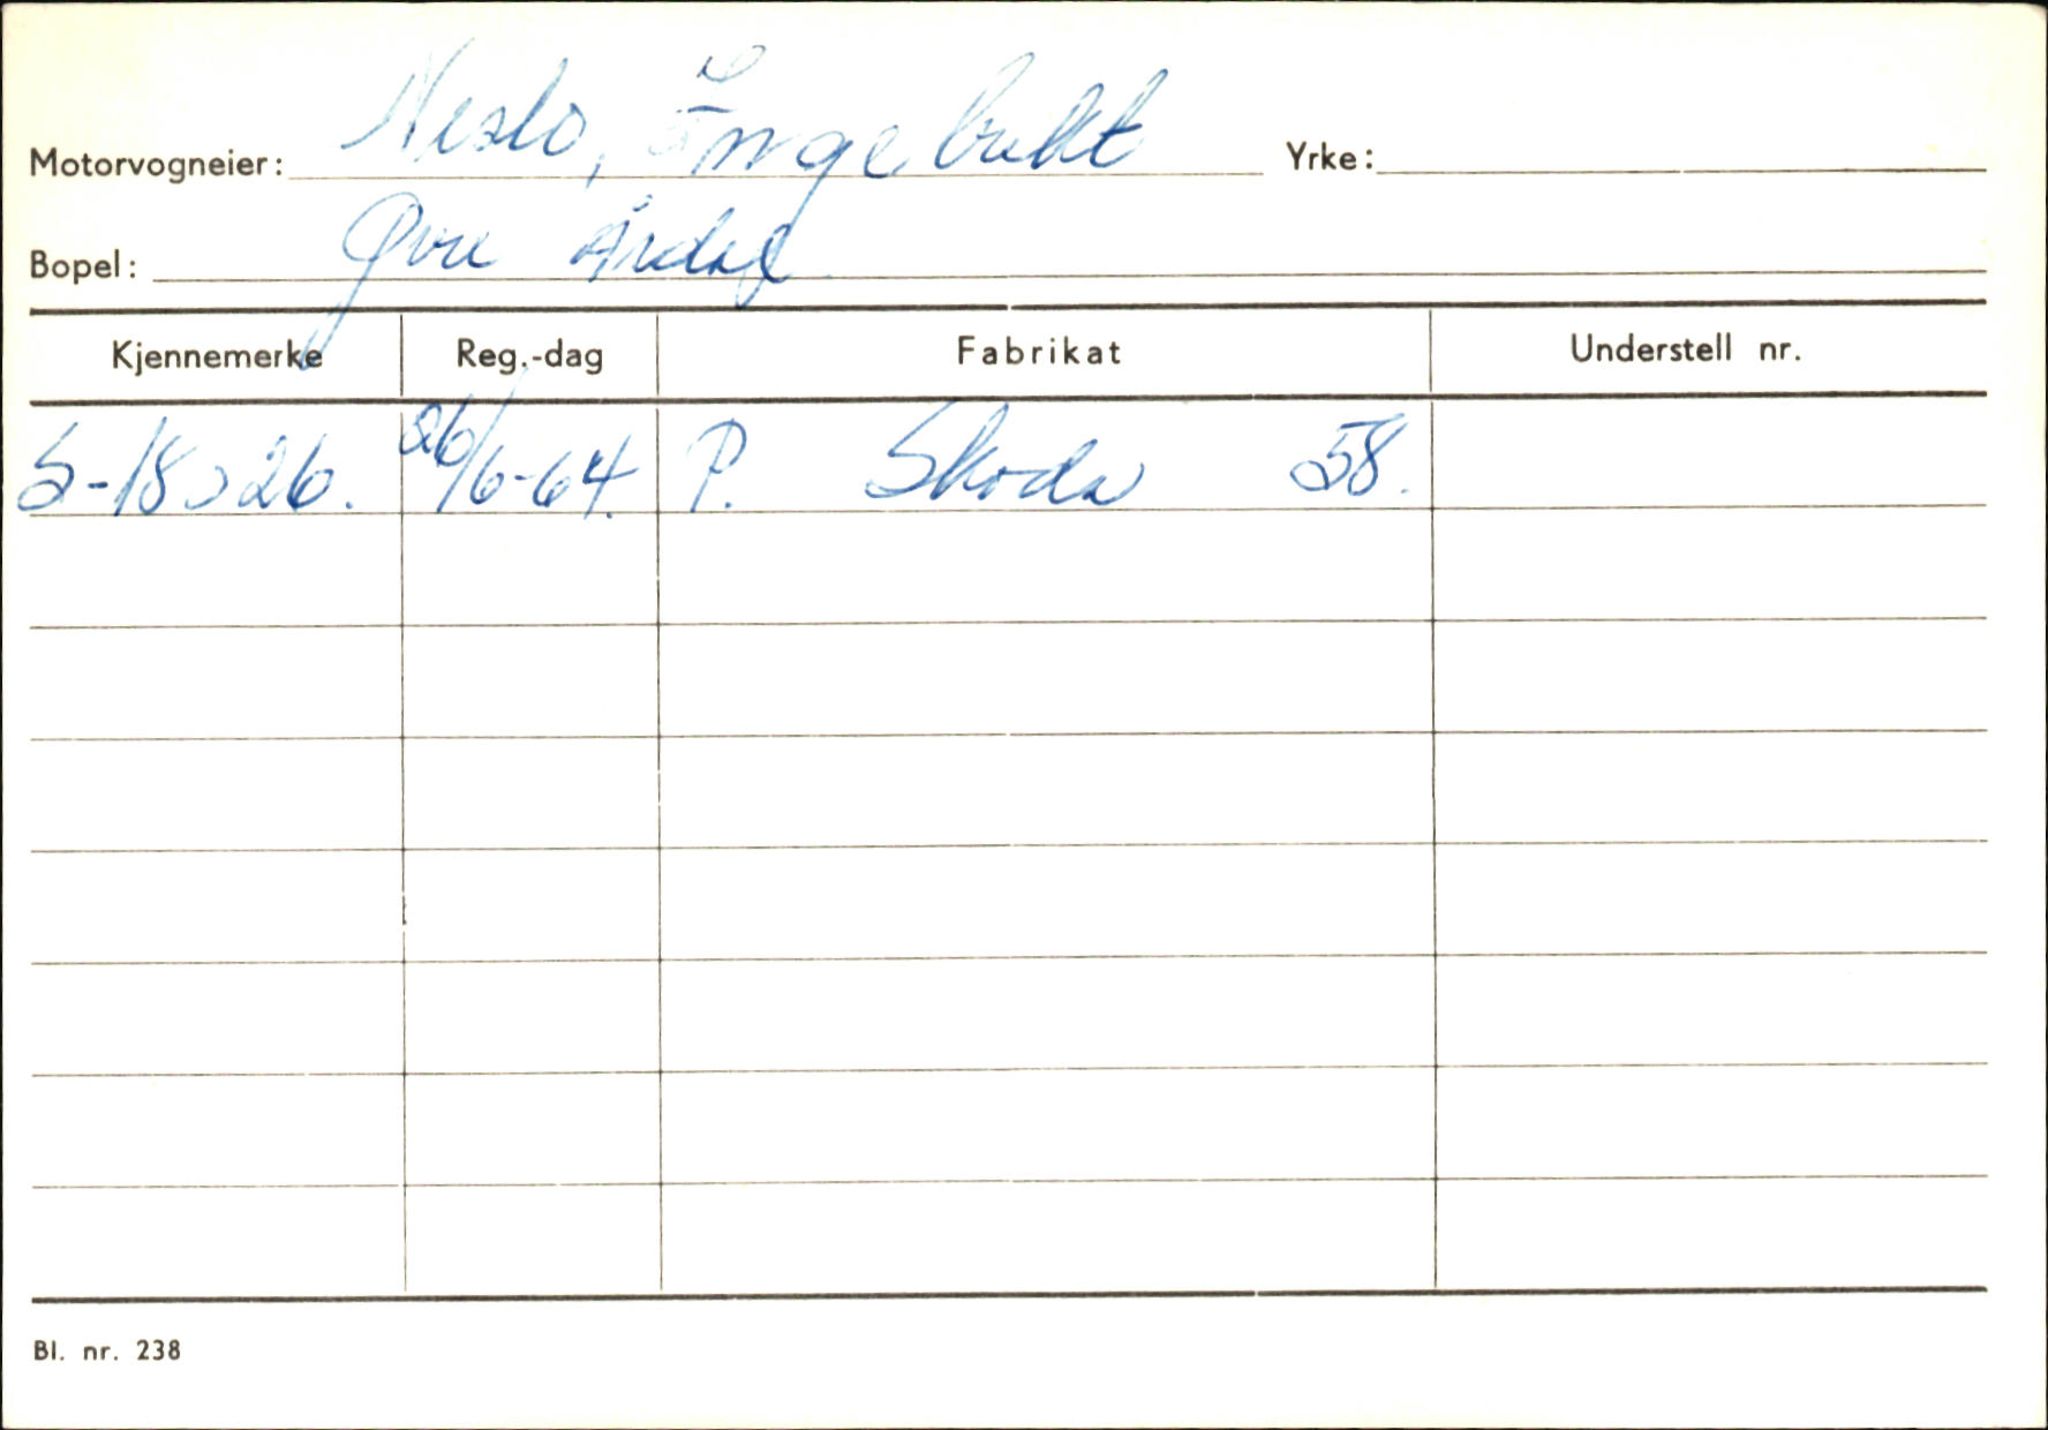 Motorvogneier: Neslo, Ingebrikt Yrke:
Bopel: Øvre Årdal
Kjennemerke Reg.-dag Fabrikat Understell nr.
S-18326. 26/6-64. P. Skoda 58.
Bl. nr. 238